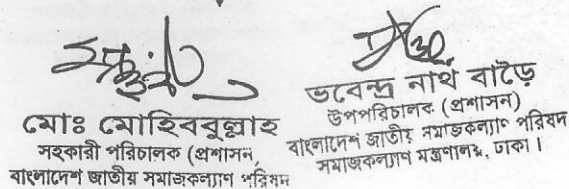 মোঃ মোহিববুল্লাহ
সহকারী পরিচালক (প্রশাসন)
বাংলাদেশ জাতীয় সমাজকল্যাণ পরিষদ
ভবেন্দ্র নাথ বাড়ৈ
উপপরিচালক (প্রশাসন)
বাংলাদেশ জাতীয় সমাজকল্যাণ পরিষদ
সমাজকল্যাণ মন্ত্রণালয়, ঢাকা।